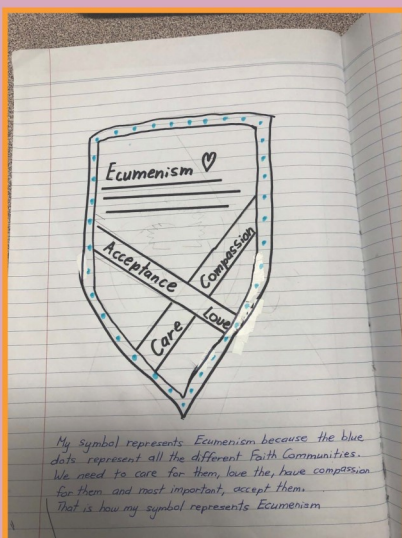 Ecumenism ♡
Acceptance
Compassion
Care
Love
My symbol represents Ecumenism because the blue
dots represent all the different Faith Communities.
We need to care for them, love the, have compassion
for them and most important, accept them.
That is how my symbol represents Ecumenism